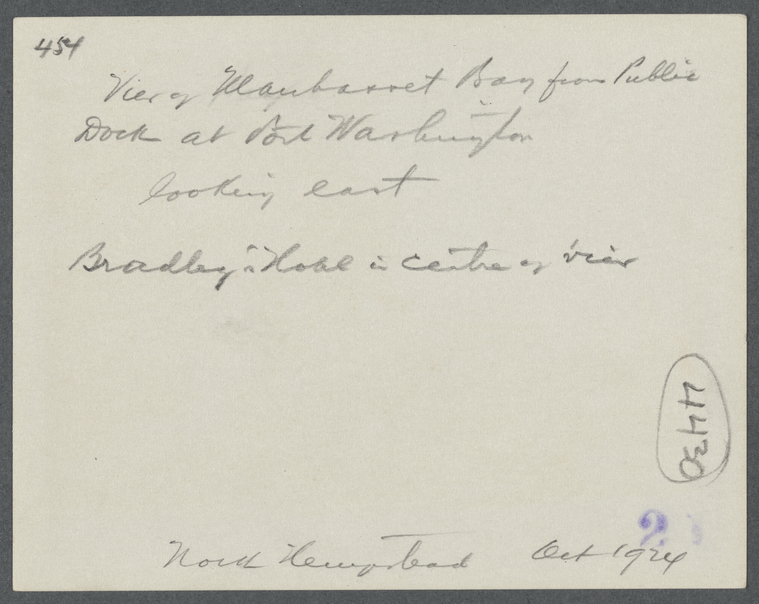 454
View of Manhasset Bay from Public
Dock at Port Washington
looking east
Bradley's Hotel in centre of view
44430
2
North Hempstead Oct 1924